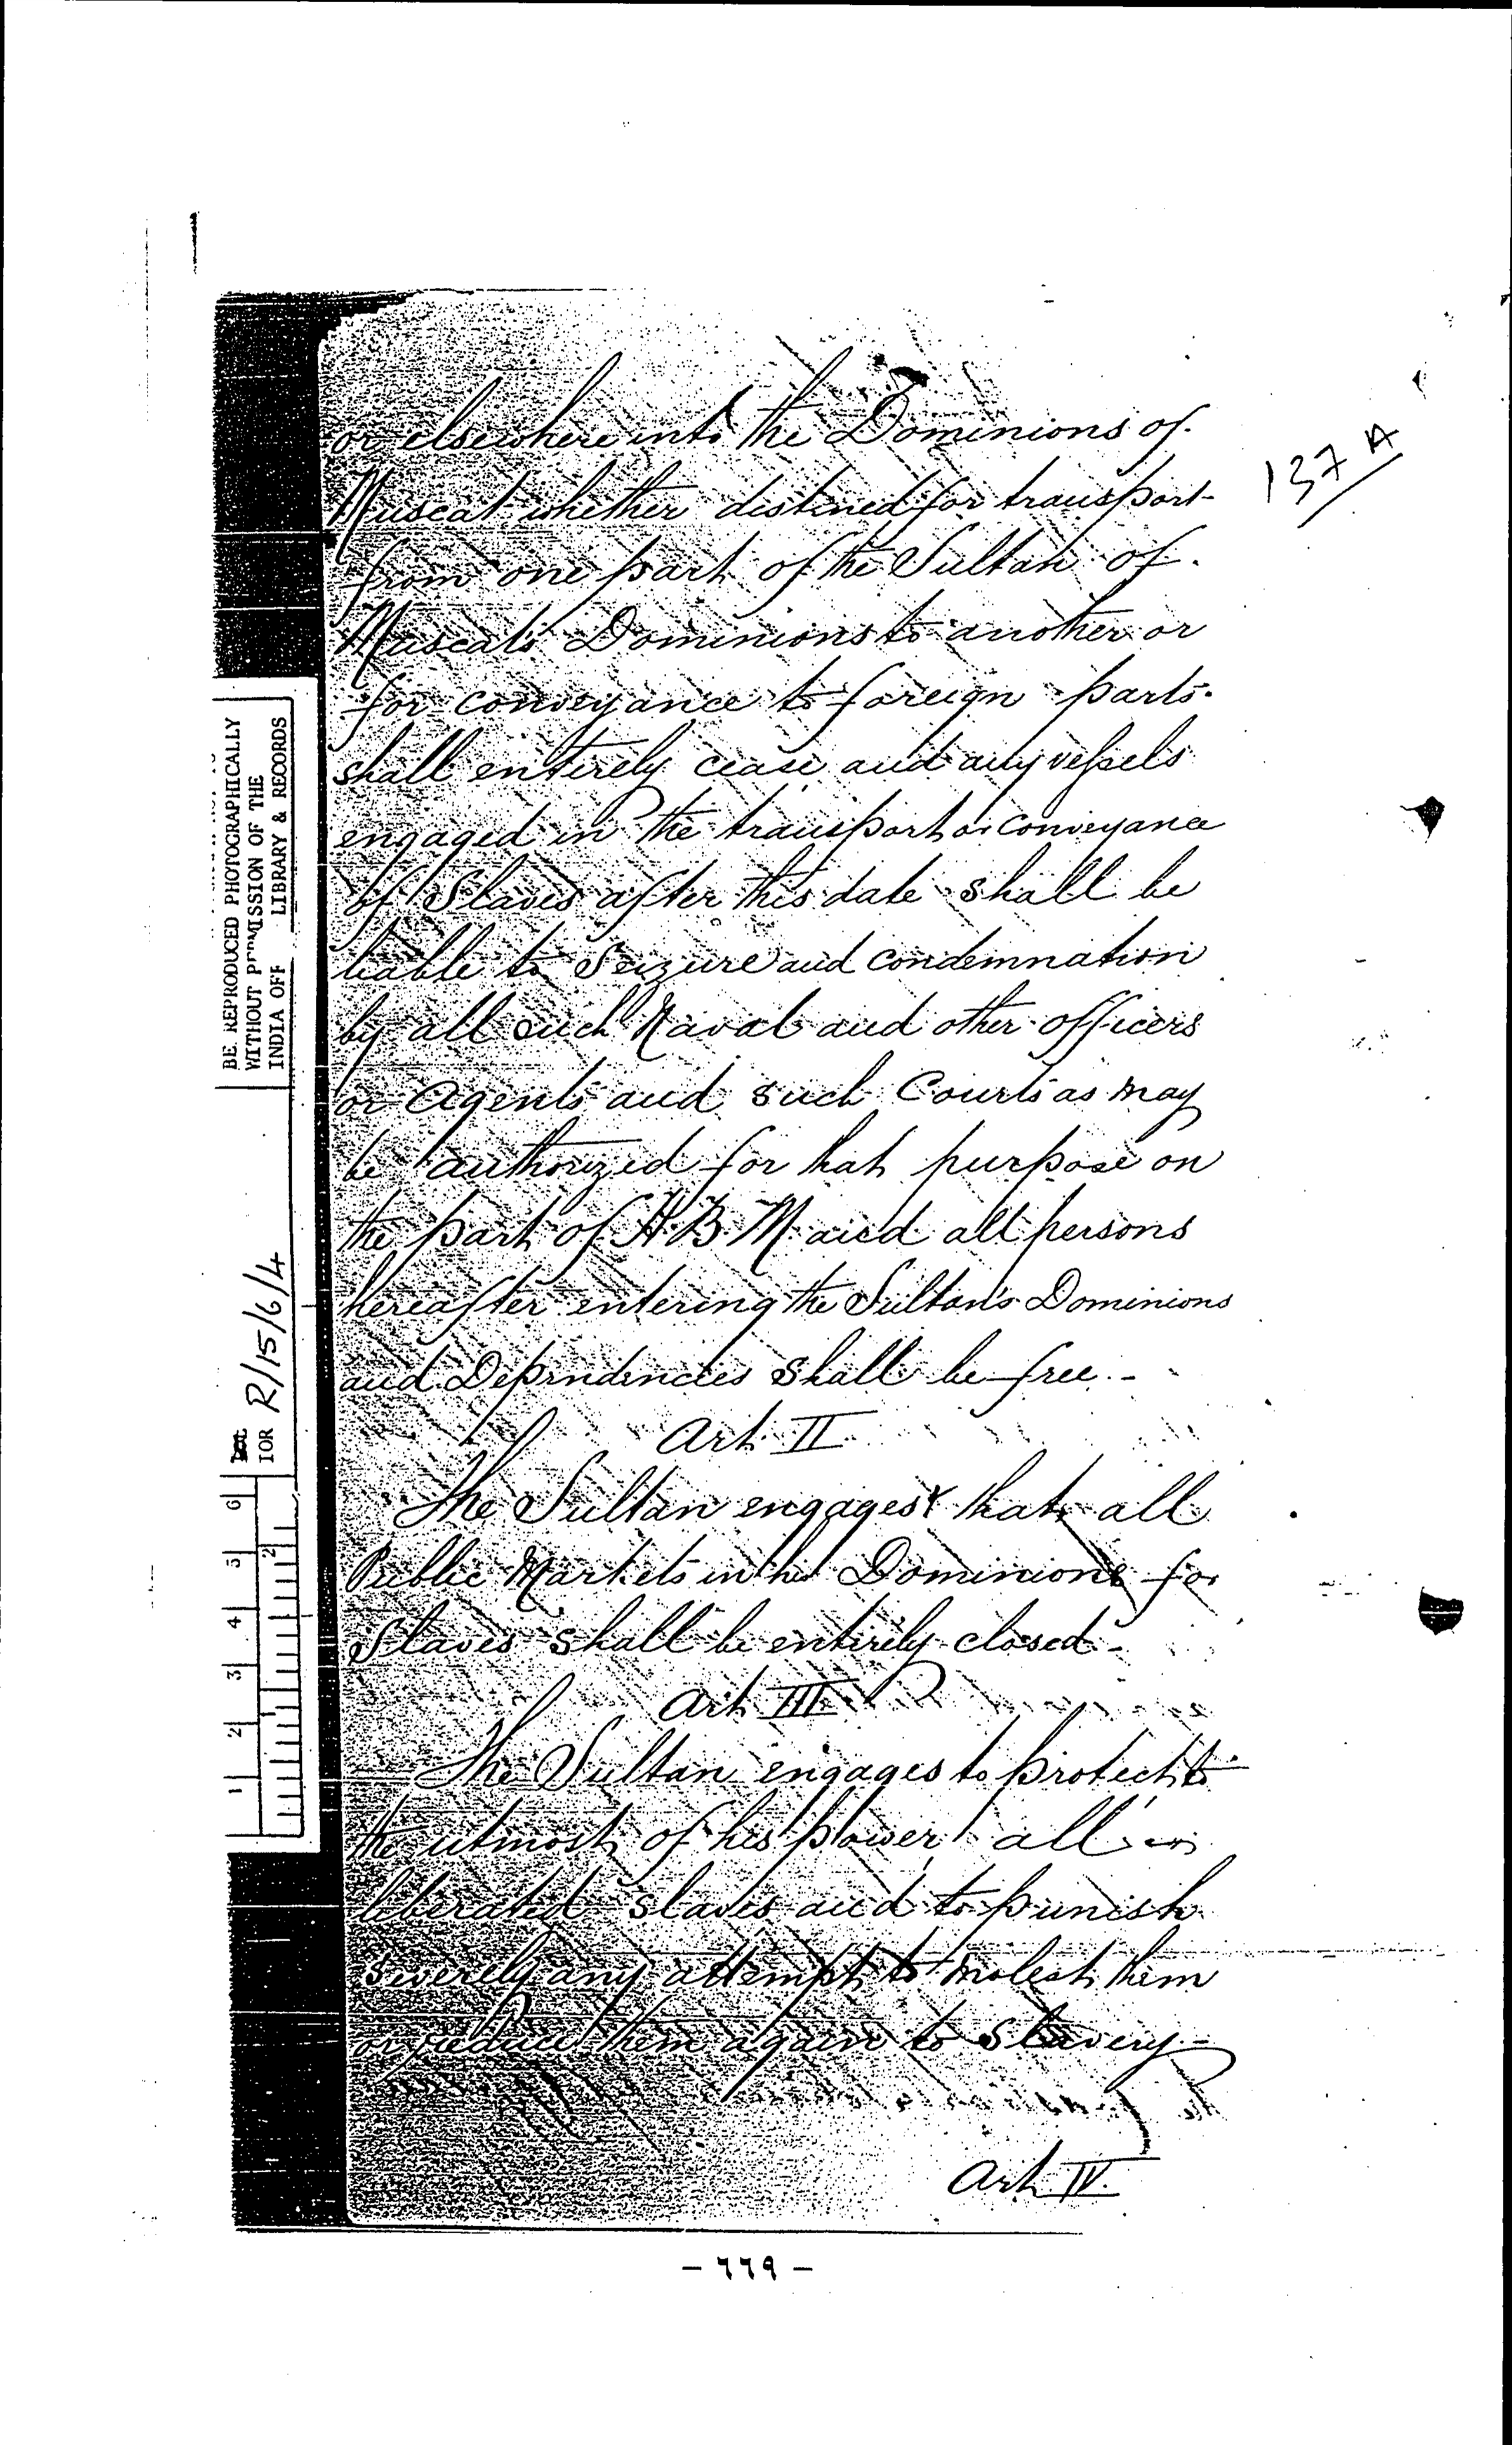 or elsewhere into the Dominions of
Muscat whether destined for transport
from one part of the Sultan of
Muscat's Dominions to another or
for conveyance to foreign parts
shall entirely cease and any vessels
engaged in the transport or conveyance
of Slaves after this date shall be
liable to Seizure and condemnation
by all such Naval and other officers
or Agents and such Courts as may
be authorized for that purpose on
the part of H.B.M. and all persons
hereafter entering the Sultan's Dominions
and Dependencies shall be free. -
Art. II
The Sultan engages that all
Public Markets in his Dominions for
Slaves shall be entirely closed -
Art III.
The Sultan engages to protect to
the utmost of his power all
liberated slaves and to punish
severely any attempt to molest them
or reduce them again to slavery -
Art IV.
137 A
BE REPRODUCED PHOTOGRAPHICALLY
WITHOUT PERMISSION OF THE
INDIA OFF LIBRARY & RECORDS
IOR R/15/6/4
1 2 3 4 5 6
2
- ٦٦٩ -